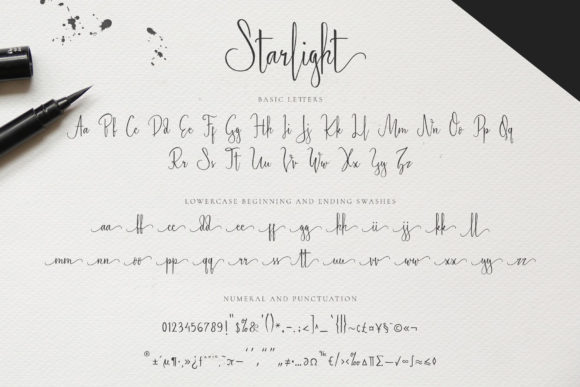 Starlight
BASIC LETTERS
Aa Bb Cc Dd Ee Ff Gg Hh Ii Jj Kk Ll Mm Nn Oo Pp Qq
Rr Ss Tt Uu Vv Ww Xx Yy Zz
LOWERCASE BEGINNING AND ENDING SWASHES
aa bb cc dd ee ff gg hh ii jj kk ll
mm nn oo pp qq rr ss tt uu vv ww xx yy zz
NUMERAL AND PUNCTUATION
0123456789!"$%&'()*,-.;<]^_`{|}~¢£¤¥§¨©«¬